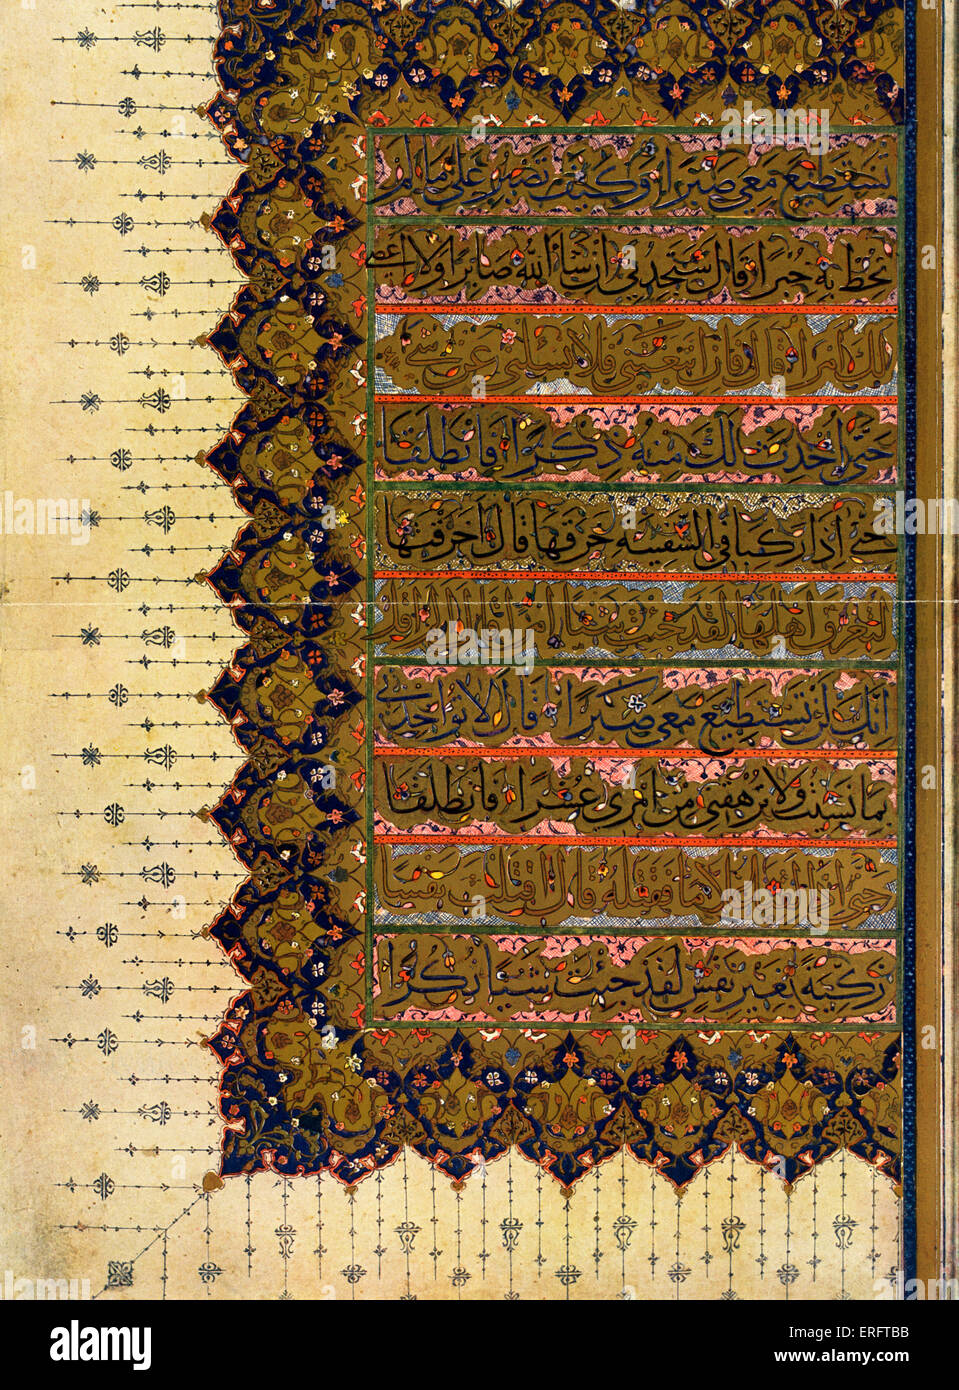 تستطيع معي صبرا وكيف تصبر على ما لم
تحط به خبرا قال ستجدني ان شاء الله صابرا ولا اعصي
لك امرا قال فان اتبعتني فلا تسئلني عن شيء
حتى احدث لك منه ذكرا فانطلقا
حتى اذا ركبا في السفينة خرقها قال اخرقتها
لتغرق اهلها لقد جئت شيئا امرا قال الم اقل
انك لن تستطيع معي صبرا قال لا تؤاخذني
بما نسيت ولا ترهقني من امري عسرا فانطلقا
حتى اذا لقيا غلاما فقتله قال اقتلت نفسا
زكية بغير نفس لقد جئت شيئا نكرا
alamy stock photo
alamy
Image ID: ERFTBB
www.alamy.com